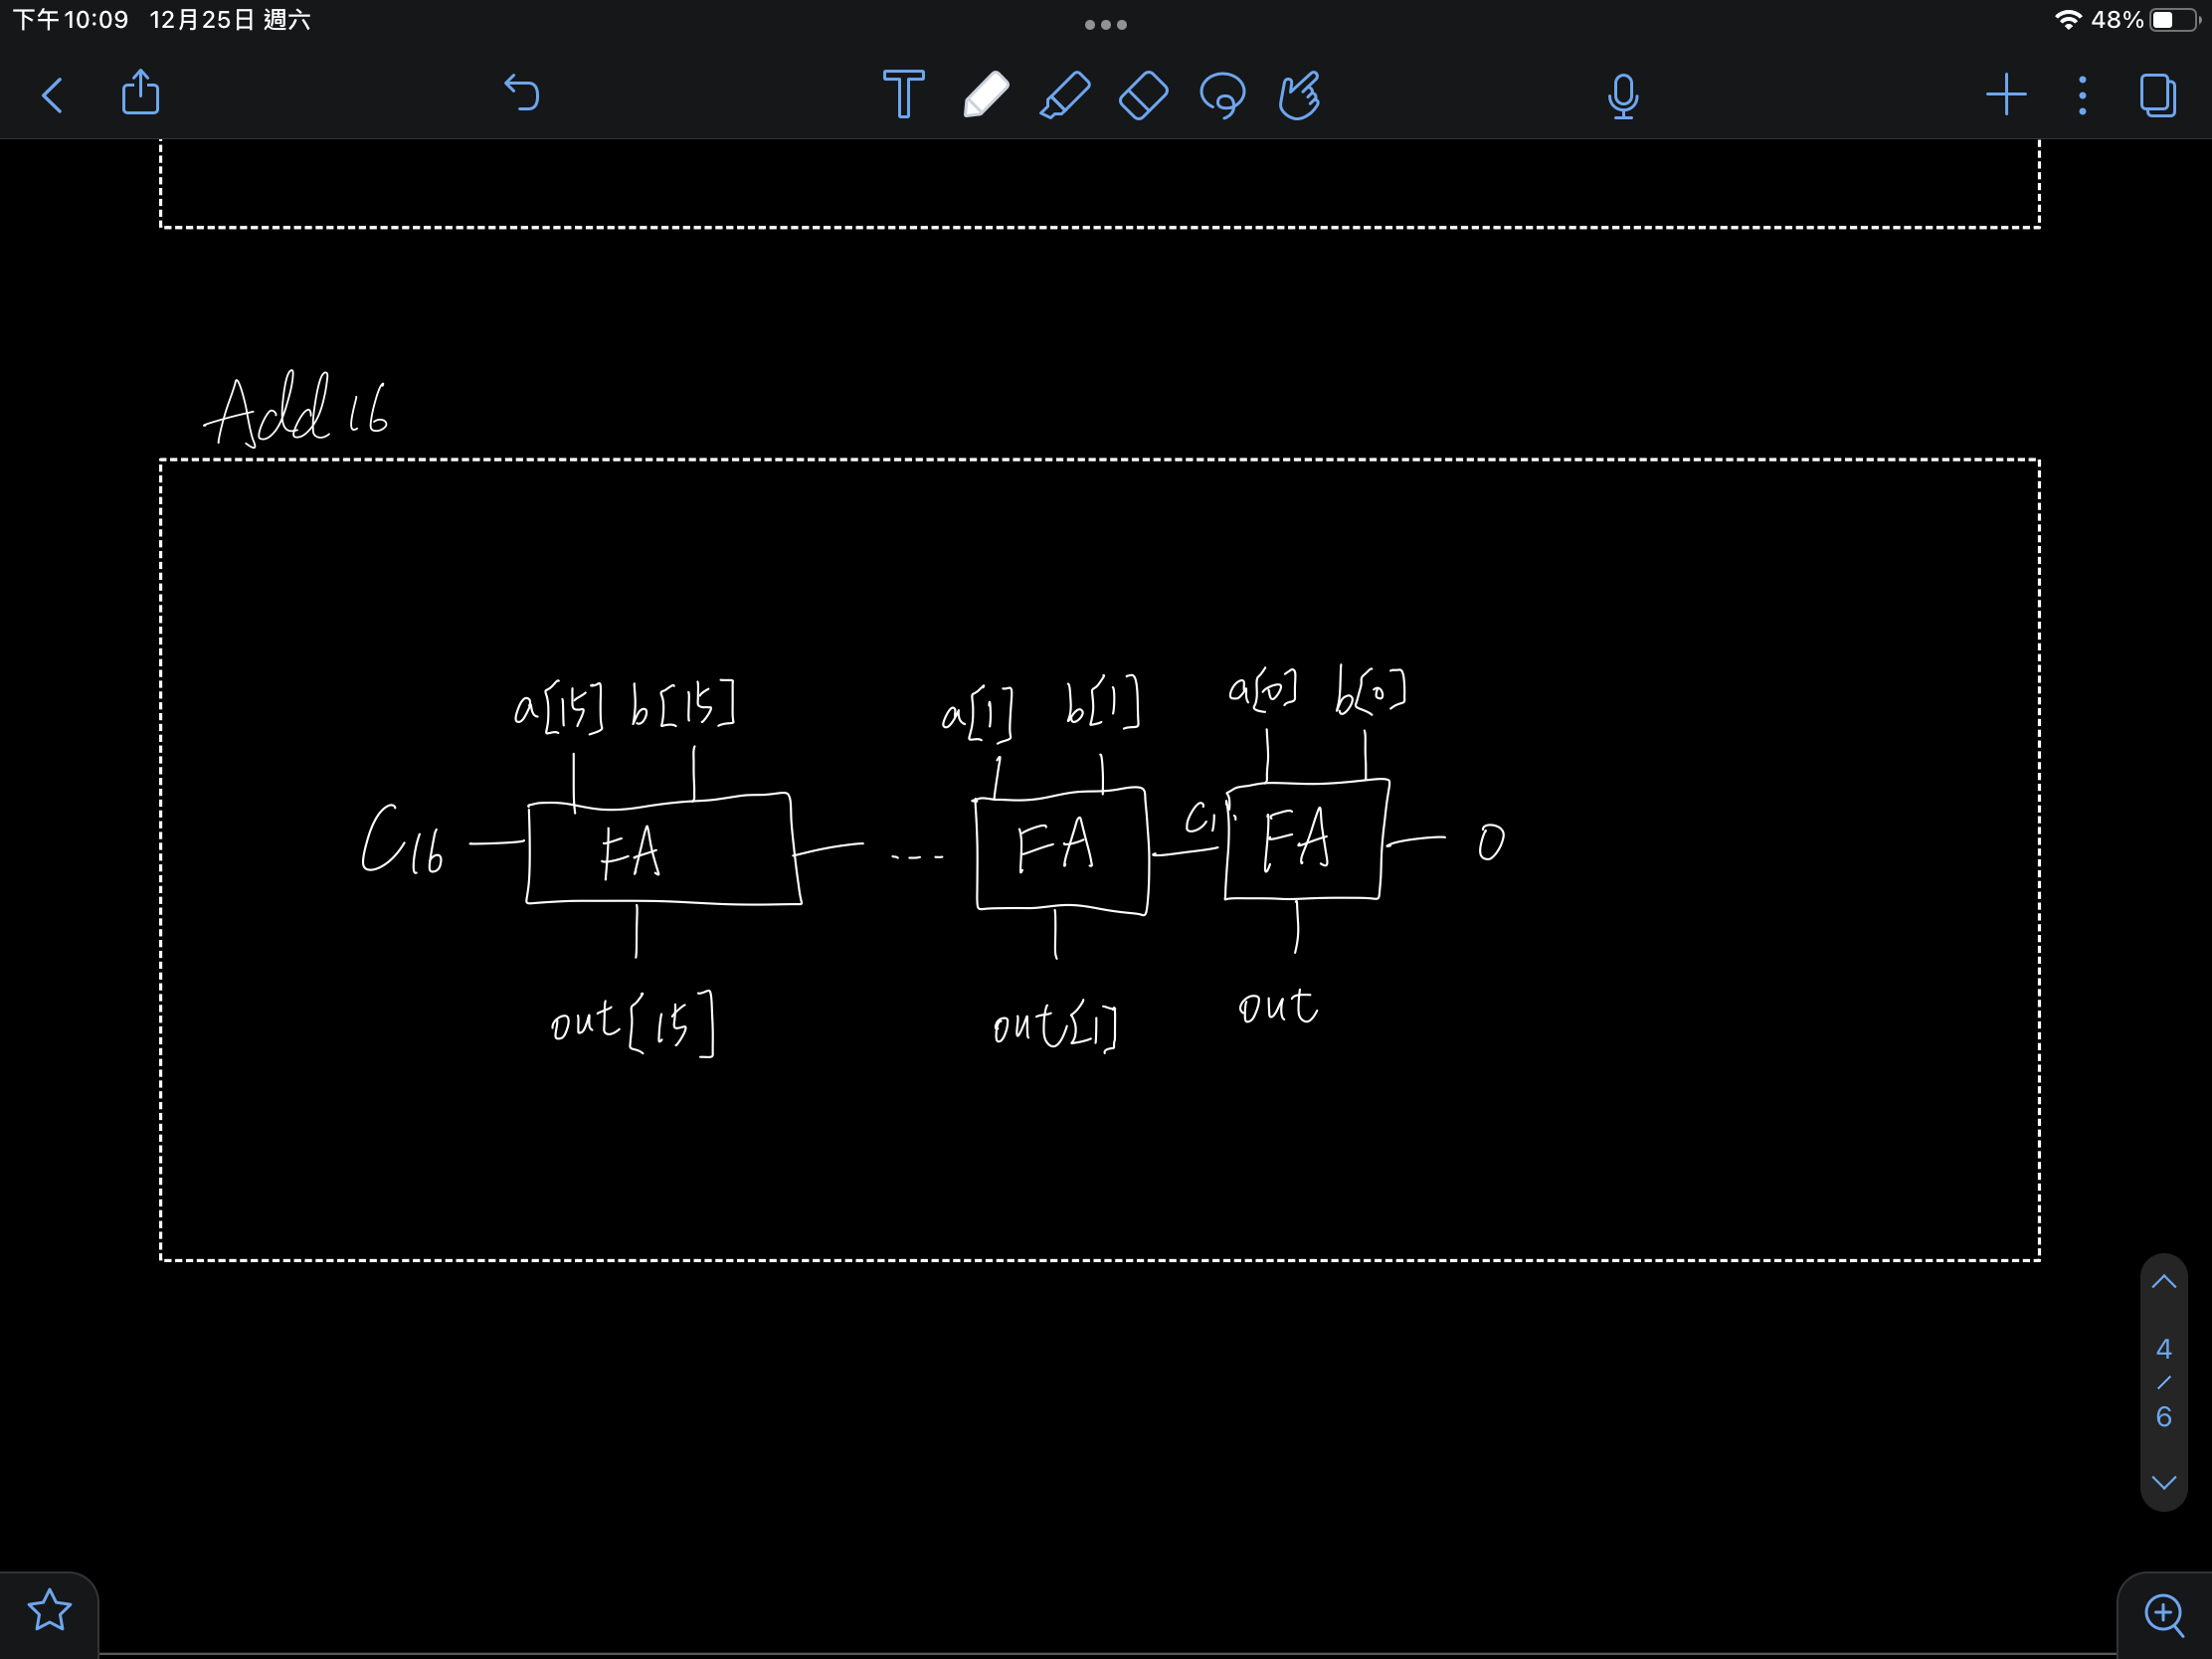 下午10:09 12月25日 週六
48%
Add 16
a[15] b[15] a[1] b[1] a[0] b[0]
C16 FA --- FA C1 FA 0
out[15] out[1] out
4
/
6